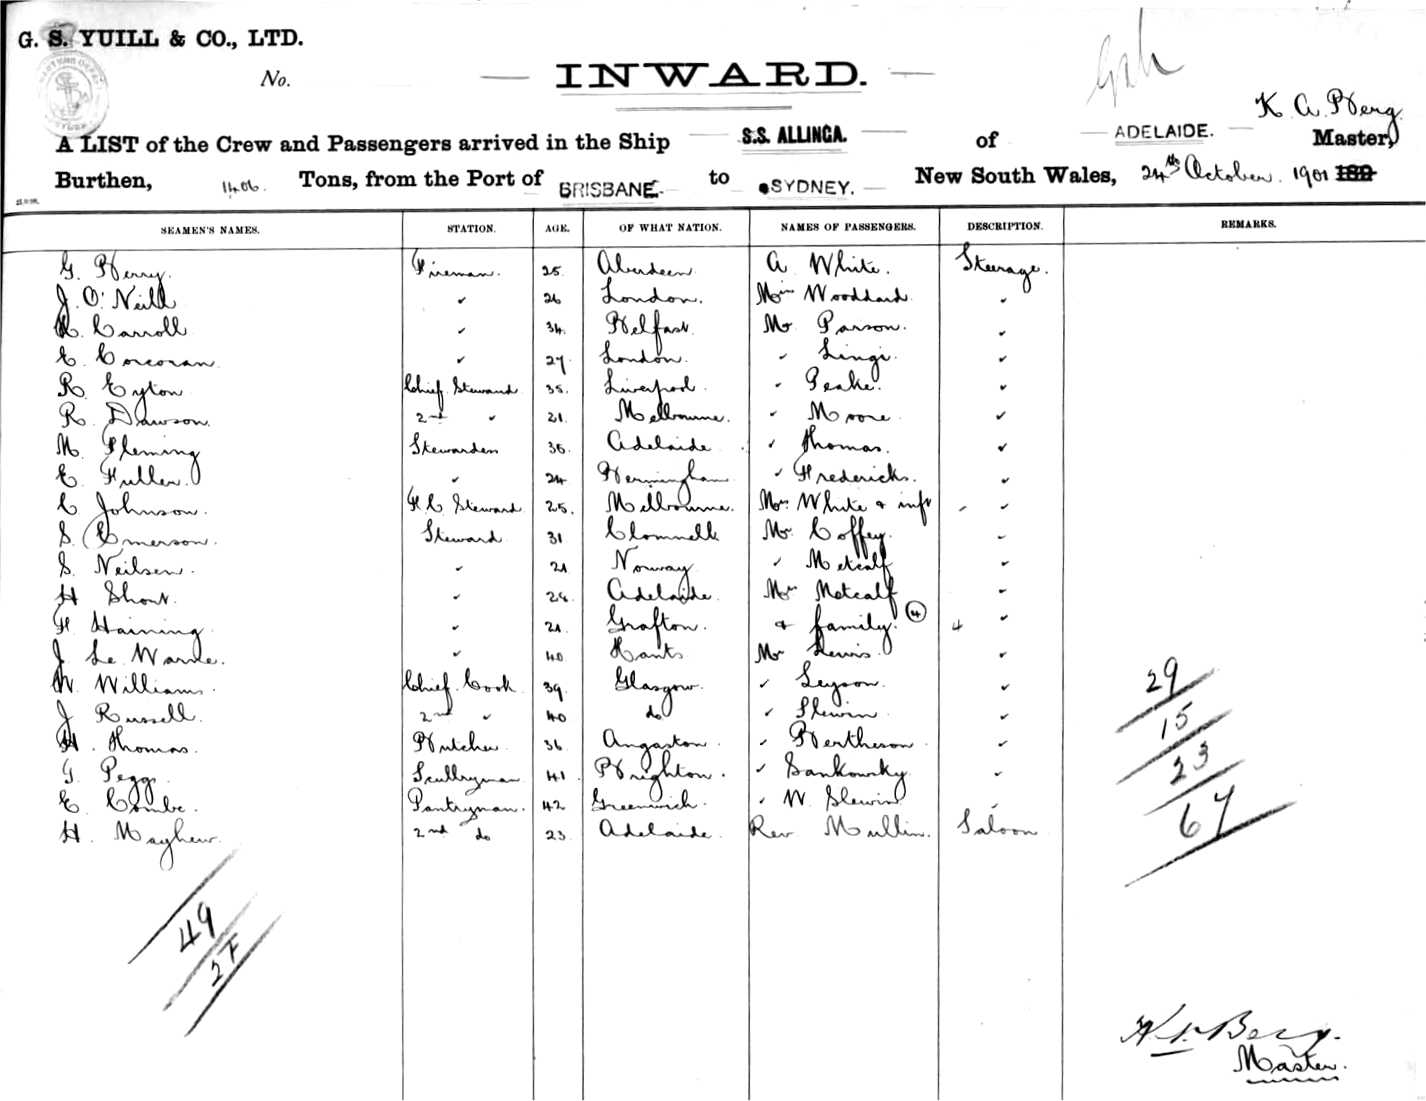 G. S. YUILL & CO., LTD.
No.
INWARD.
K. A. Berg
A LIST of the Crew and Passengers arrived in the Ship S.S. ALLINGA. of ADELAIDE. Master,
Burthen, 1406. Tons, from the Port of BRISBANE. to SYDNEY. New South Wales, 24th October. 1901 189
SEAMEN'S NAMES. STATION. AGE. OF WHAT NATION. NAMES OF PASSENGERS. DESCRIPTION. REMARKS.
G. Berry. Fireman. 25. Aberdeen A White. Steerage.
J. O'Neill ✓ 26 London. Miss Woodward ✓
R. Carroll ✓ 34. Belfast. Mr Parson. ✓
E. Corcoran. ✓ 27. London. ✓ ✓
R. Eyton Chief Steward 35. Liverpool. ✓ Peake. ✓
R. Dawson. 2nd ✓ 21. Melbourne. ✓ Moore. ✓
M. Fleming Stewardess 36. Adelaide ✓ Thomas. ✓
E. Fuller. ✓ 24 Bermingham ✓ Fredericks. ✓
C Johnson. F. C. Steward 25. Melbourne. Mrs White & inft ✓
S. Emerson. Steward 31 Clonmell Mr. Coffey. ✓
S. Neilsen. ✓ 21 Norway ✓ Metcalf ✓
H Short. ✓ Adelaide. Mrs Metcalf ✓
F Haining ✓ 21. Grafton. & family. 4 4 ✓
J Le Warne. ✓ 40 Hants Mr Lewis. ✓
W. Williams. Chief Cook 39 Glasgow. ✓ Leyson. ✓
J Russell. 2nd ✓ 40 do ✓ Slewin ✓
H. Thomas. Butcher 36 Angaston. ✓ ✓
G. Peggs. Scullryman 41. Brighton. ✓ Sankowsky ✓
E. Combe. Pantryman. 42 Greenwich. ✓ W. Slewin ✓
H. Mayhew. 2nd do 23. Adelaide. Rev Mullin. Saloon
29
15
23
67
49
27
Berg.
Master.